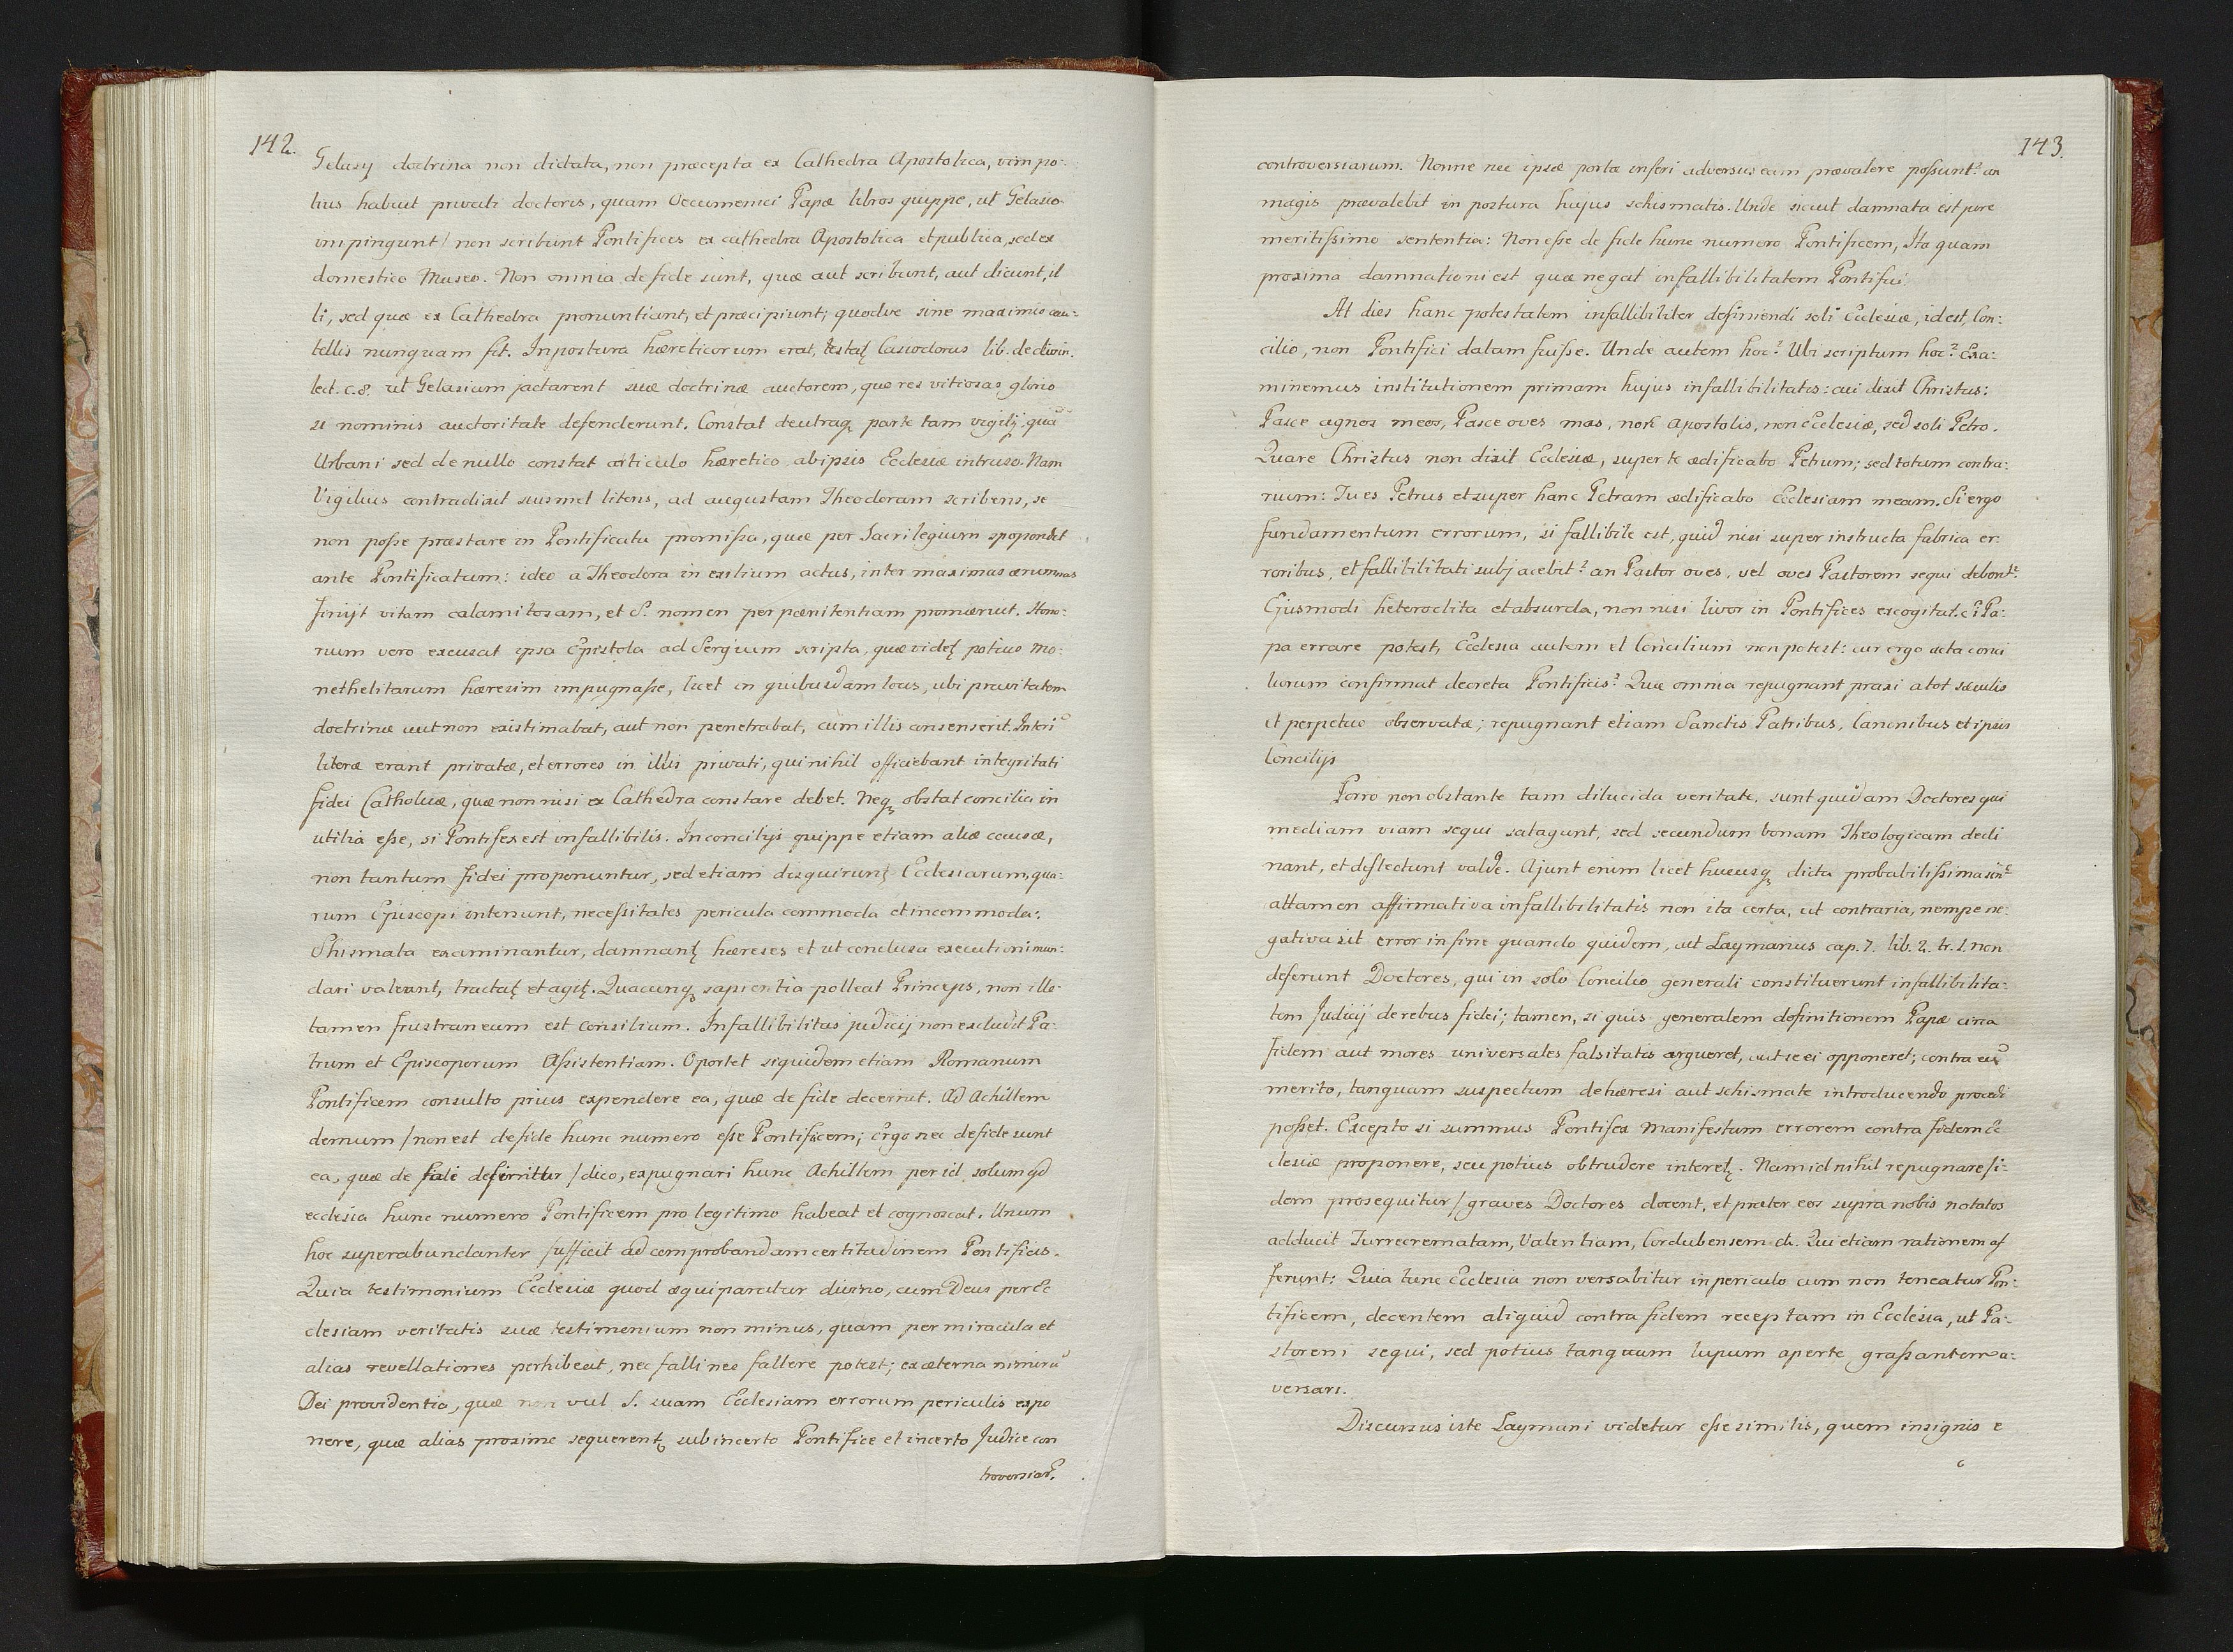 142.
Gelasy doctrina non dictata, non præcepta ex Cathedra Apostolica, vim po:
tius habuit privati doctoris, quam Oecumenici Papæ libros quippe, ut Gelasio
impingunt / non scribunt Pontifices ex cathedra Apostolica et publica, sed ex
domestico Museo. Non omnia de fide sunt, quæ aut scribunt, aut dicunt, il
li, sed quæ ex Cathedra pronuntiant, et præcipiunt; quodve sine maximis cau:
tellis nunquam fit. Inpostura hæreticorum erat, testatʒ Casiodorus lib. de divin.
lect. c. 8. ut Gelasium jactarent suæ doctrinæ auctorem, quæ res vitiosas glorio
si nominis auctoritate defenderunt. Constat deutraqʒ parte tam vigilÿ, quã
Urbani sed de nullo constat articulo hæretico ab ipsis Ecclesiæ intruso. Nam
Vigilius contradixit suismet literis, ad augustam Theodoram scribens, se
non posse præstare in Pontificatu promissa, quæ per Sacrilegium spopondit
ante Pontificatum: ideo a Theodora in exilium actus, inter maximas ærumnas
finijt vitam calamitosam, et S. nomen per pænitentiam promæruit. Hono:
rium vero excusat ipsa Epistola ad Sergium scripta, quæ videtʒ potius Mo:
nethelitarum hæresim impugnasse, licet in quibusdam locis, ubi pravitatem
doctrinæ aut non existimabat, aut non penetrabat, cum illis consenserit. Interĩ
literæ erant privatæ, et errores in illis privati, qui nihil officiebant integritati
fidei Catholicæ, quæ non nisi ex Cathedra constare debet. Neqʒ obstat concilia in
utilia esse, si Pontifex est infallibilis. In concilÿs quippe etiam aliæ causæ,
non tantum fidei proponuntur, sed etiam disquiruntʒ Ecclesiarum, qua:
rum Episcopi intenunt, necessitates pericula commoda et incommoda:
Shismata examinantur, damnantʒ hæreses et ut conclusa executioni mun:
dari valeant, tractatʒ et agitʒ. Quacunqʒ sapientia polleat Princeps, non illo
tamen frustraneum est consilium. Infallibilitas judicij non excludit Pa:
trum et Episcoporum Assistentiam. Oportet siquidem etiam Romanum
Pontificem consulto prius expendere ea, quæ de fide decernit. Ad Achillem
demum / non est de fide hunc numero esse Pontificem; Ergo nec de fide sunt
ea, quæ de fide definittur / dico, expugnari hunc Achillem per id solum qd
ecclesia hunc numero Pontificem pro legitimo habeat et cognoscat. Unum
hoc superabundanter sufficit ad comprobandam certitudinem Pontificis.
Quia testimonium Ecclesiæ quod æquiparatur divino, cum Deus per Ec
clesiam veritatis suæ testimonium non minus, quam per miracula et
alias revellationes perhibeat, nec falli nec fallere potest; ex æterna nimirũ
Dei providentia, quæ non vul S. suam Ecclesiam errorum periculis expo
nere, quæ alias proxime sequerentʒ sub incerto Pontifice et incerto Judice con
troversiar.
143.
controversiarum. Nonne nec ipsæ portæ inferi adversus eam prævalere possunt? an
magis prævalebit in postura hujus schismatis. Unde sicut damnata est pure
meritissimo sententia: Non esse de fide hunc numero Pontificem, Ita quam
proxima damnationi est quæ negat infallibilitatem Pontifici.
At dies hanc potestatem infallibiliter definiendi soli Ecclesiæ, id est, Con:
cilio, non Pontifici datam fuisse. Unde autem hoc? Ubi scriptum hoc? Exa:
minemus institutionem primam hujus infallibilitatis: cui dixit Christus:
Pasce agnos meos, Pasce oves mas, non Apostolis, non Ecclesiæ, sed soli Petro.
Quare Christus non dixit Ecclesiæ, super te ædificabo Petrum; sed totum contra:
rium: Tu es Petrus et super hanc Petram ædificabo Ecclesiam meam. Si ergo
fundamentum errorum, si fallibile est, quid nisi super instructa fabrica er:
roribus, et fallibilitati subjacebit? an Pastor oves, vel oves Pastorem sequi debent?
Ejusmodi heteroclita et absurda, non nisi livor in Pontifices excogitat. Pa:
pa errare potest, Ecclesia autem et Concilium non potest: cur ergo acta conci
liorum confirmat decreta Pontificis? Quæ omnia repugnant praxi a tot sæculis
et perpetuo observatæ; repugnant etiam Sanctis Patribus, Canonibus et ipsis
Concilijs
Porro non obstante tam dilucida veritate, sunt quidam Doctores qui
mediam viam sequi satagunt, sed secundum bonam Theologicam decli
nant, et deflectunt valde. Ajunt enim licet hucusqʒ dicta probabilissima sint
attamen affirmativa infallibilitatis non ita certa, ut contraria, nempe ne:
gativa sit error in fine quando quidem, ait Laymanus cap. 7. lib. 2. tr. 1. non
deferunt Doctores, qui in solo Concilio generali constituerunt infallibilita:
tem Judicij de rebus fidei; tamen, si quis generalem definitionem Papæ circa
fidem aut mores universales falsitatis argueret, aut se ei opponeret; contra eũ
merito, tanquam suspectum de hæresi aut schismate introducendo procedi
posset. Excepto si summus Pontifex manifestum errorem contra fidem Ec
clesiæ proponere, seu potius obtrudere interetʒ. Nam id nihil repugnare fi:
dem prosequitur / graves Doctores docent, et præter eos supra nobis notatos
adducit Turrecrematam, Valentiam, Cordubensem &. Qui etiam rationem af
ferunt: Quia tunc Ecclesia non versabitur in periculo cum non teneatur Pon:
tificem, decentem aliquid contra fidem receptam in Ecclesia, ut Pa:
storem sequi, sed potius tanquam lupum aperte grassantem a:
versari.
Discursus iste Laymani videtur esse similis, quem insignis e